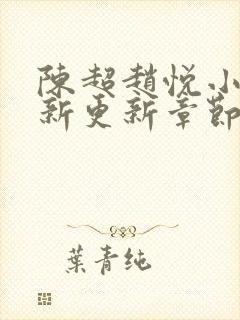 陳超趙悦小
新更新章節
葉青纯